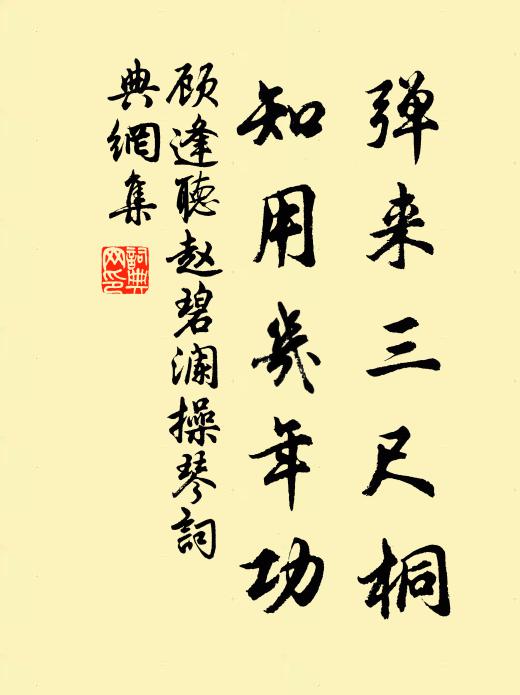 弹来三尺桐
知用幾年功
顾逢聽赵碧澜操琴詞
典網集
詞典
网印